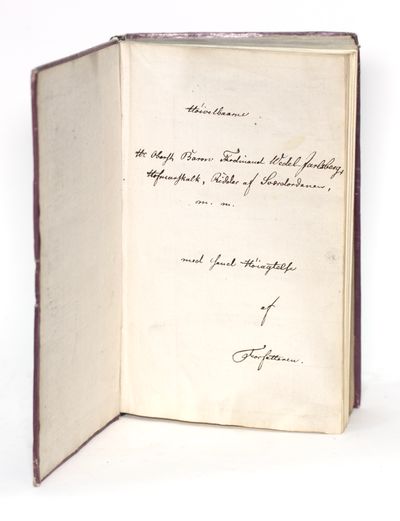 Høivelbaarne
Hr. Oberst, Baron Ferdinand Wedel Jarlsberg,
Hofmarskalk, Ridder af Sværdordenen,
m. m.
med sand Høiagtelse
af
Forfatteren.